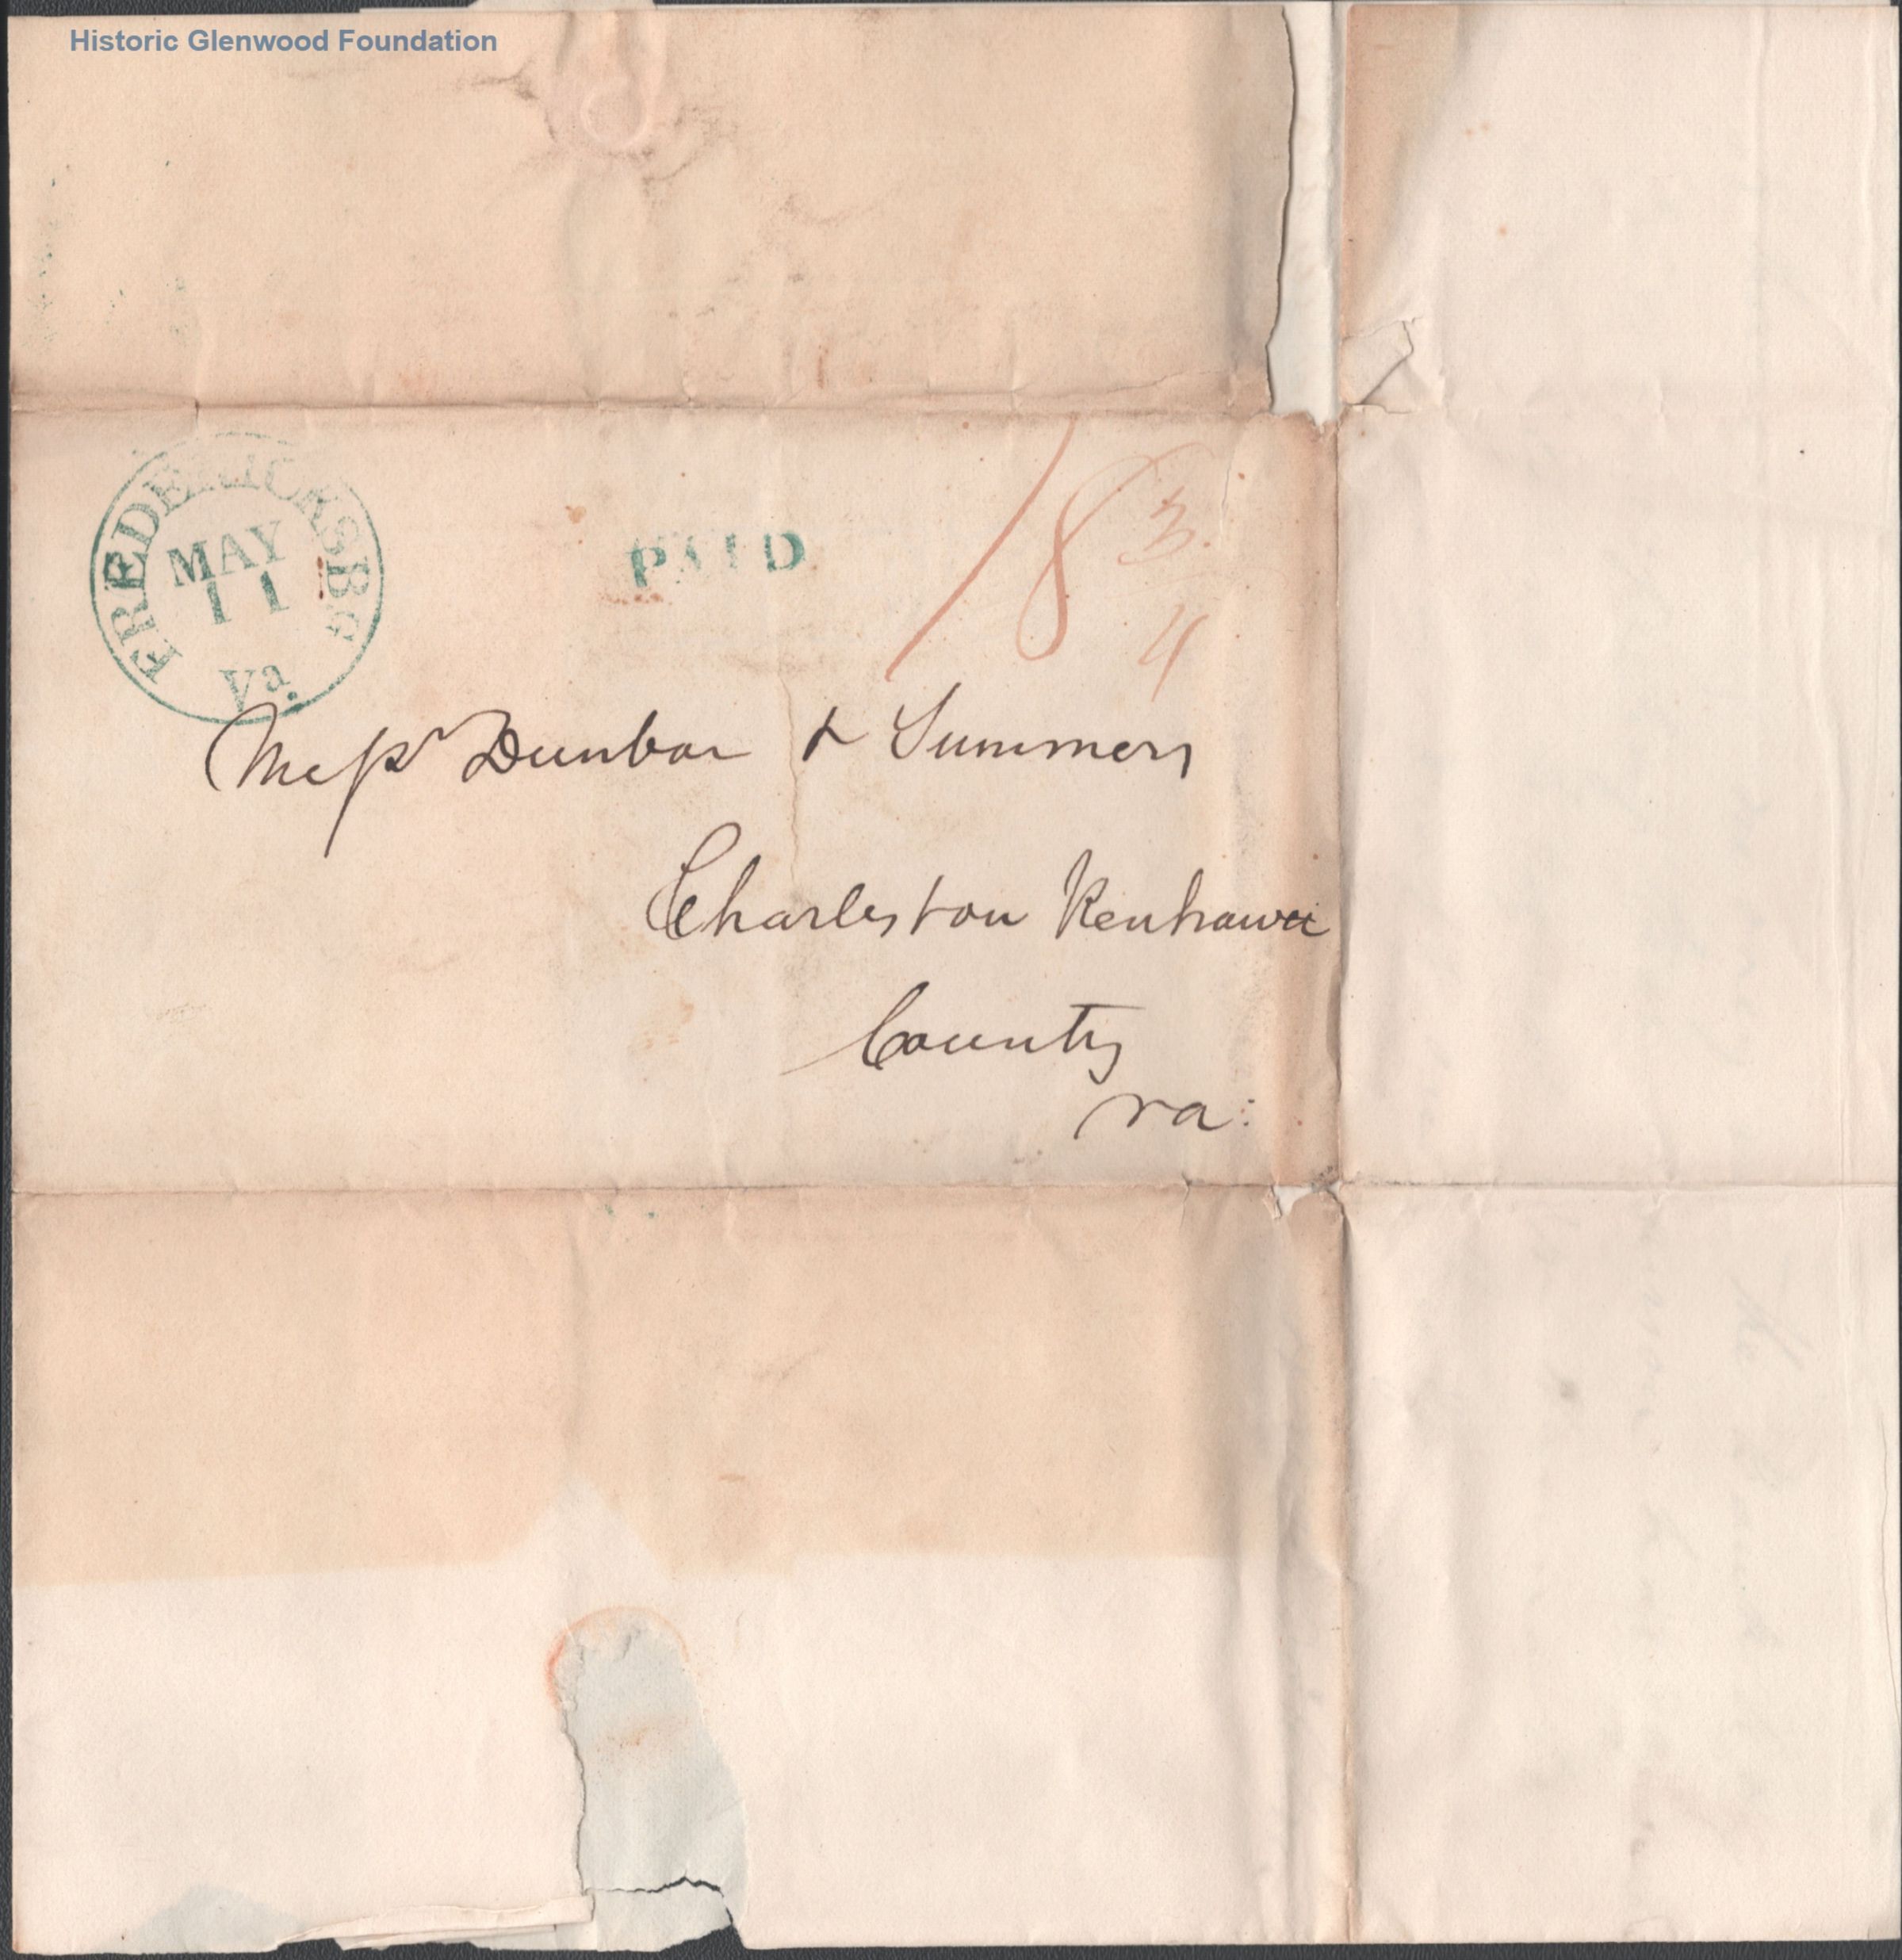 Historic Glenwood Foundation
FREDERICKSBg
MAY
11
Va.
PAID
18 3/4
Messrs Dunbar & Summers
Charleston Kenhawa
County
Va: